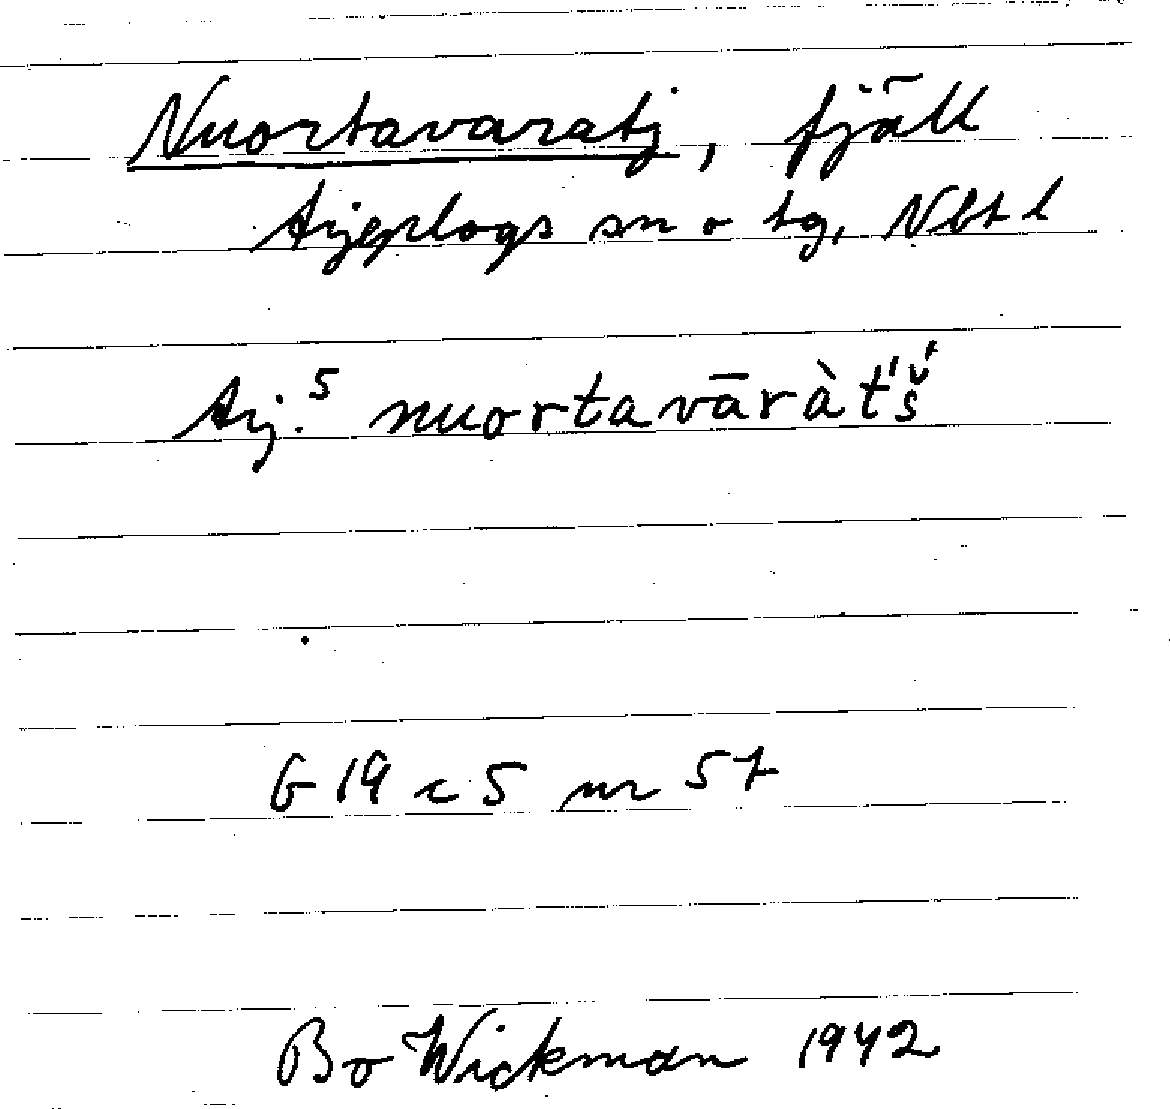 Nuortavaratj, fjäll
Arjeplogs sn o tg, Nbt l
Arj.⁵ nuortavāràt́'š́
G 19 c 5 nr 57
Bo Wickman 1942